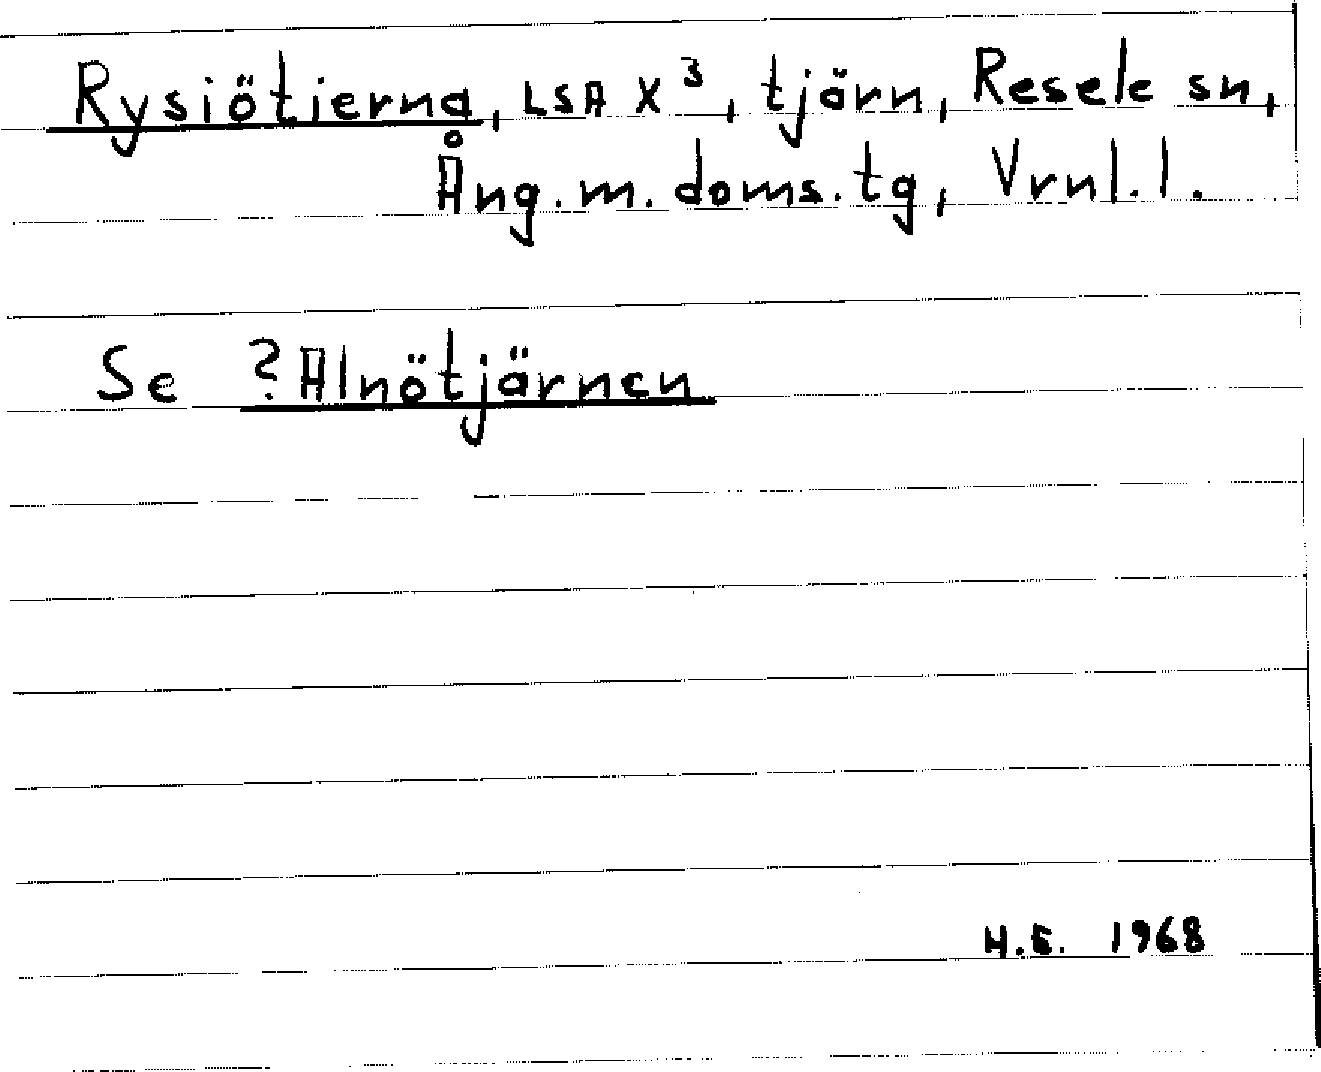 Rysiötierna, LSA X³, tjärn, Resele sn,
Ång. m. doms. tg, Vrnl. l.
Se ?Alnötjärnen
H.E. 1968